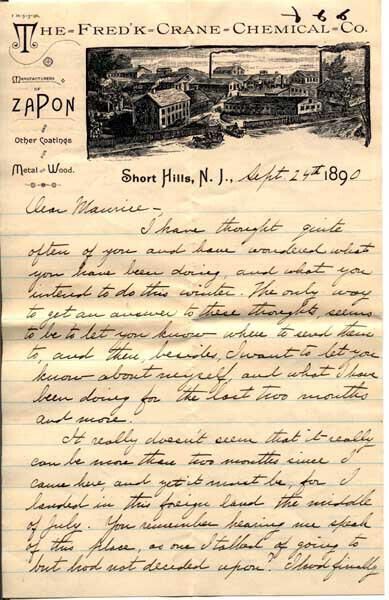 The Fred'k Crane Chemical Co.
Manufacturers
of
Zapon
and
Other Coatings
for
Metal and Wood.
Short Hills, N. J., Sept. 24th 1890
Dear Maurice-,
I have thought quite
often of you and have wondered what
you have been doing, and what you
intend to do this winter. The only way
to get an answer to these thoughts, seems
to be to let you know where to send them
to, and then, besides, I want to let you
know about myself and what I have
been doing for the last two months
and more.
It really doesn't seem that it really
can be more than two months since I
came here, and yet it must be, for I
landed in this foreign land the middle
of July. You remember hearing me speak
of this place, as one I talked of going to
"but had not decided upon". I had finally